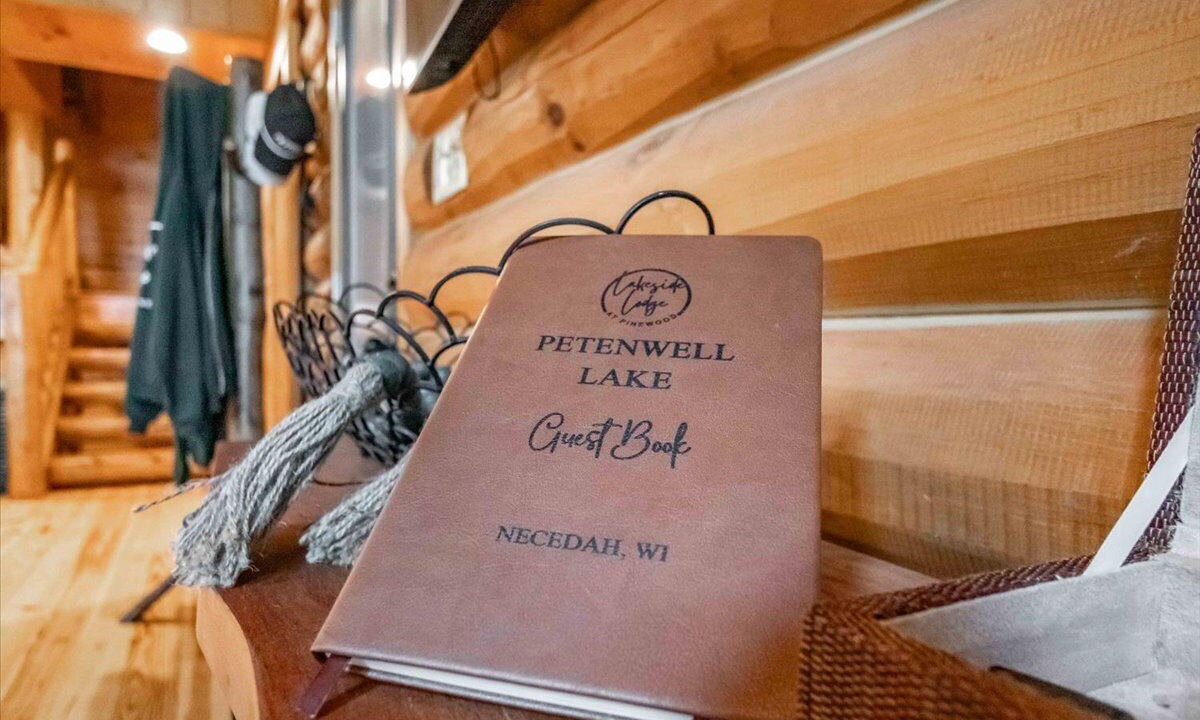 Lakeside
Lodge
AT PINEWOOD
PETENWELL
LAKE
Guest Book
NECEDAH, WI